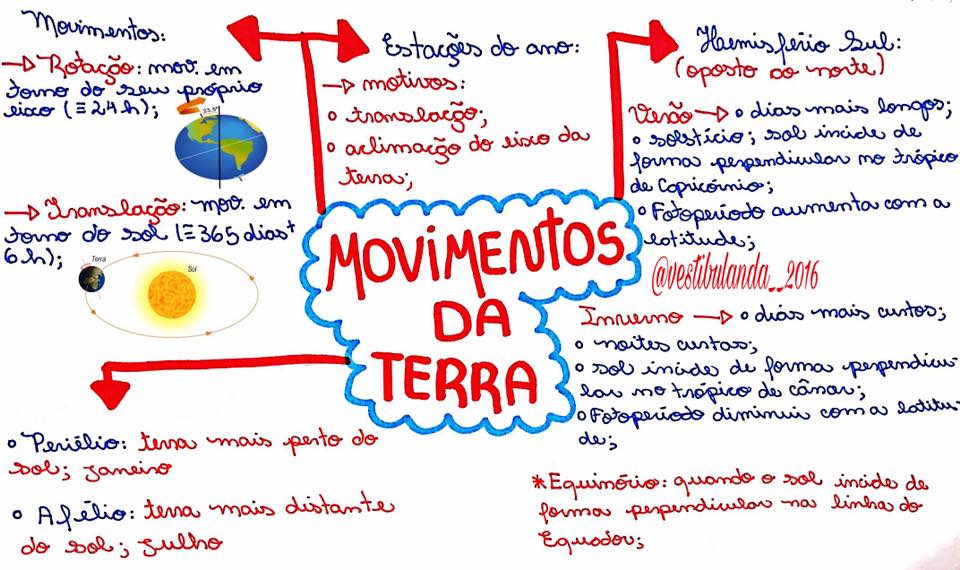 Movimentos:
→ Rotação: mov. em
torno do seu próprio
eixo (≡ 24 h);
23,5°
→ Translação: mov. em
torno do sol (≡ 365 dias +
6 h);
Terra
Sol
Estações do ano:
→ motivos:
o translação;
o aclimação do eixo da
terra;
Haemisfério Sul:
(oposto ao norte)
Verão → o dias mais longos;
o solstício; sol incide de
forma perpendicular no trópico
de Capricórnio;
o Fotoperíodo aumenta com a
latitude;
@vestibulanda__2016
Inverno → o dias mais curtos;
o noites curtas;
o sol incide de forma perpendicu-
lar no trópico de câncer;
o Fotoperíodo diminui com a latitu-
de;
MOVIMENTOS
DA
TERRA
o Periélio: terra mais perto do
sol; janeiro
o Afélio: terra mais distante
do sol; julho
*Equinócio: quando o sol incide de
forma perpendicular na linha do
Equador;